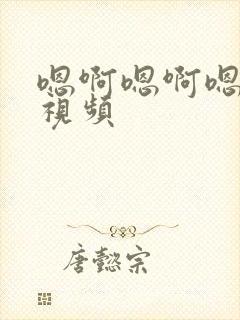 嗯啊嗯啊嗯
视频
唐懿宗